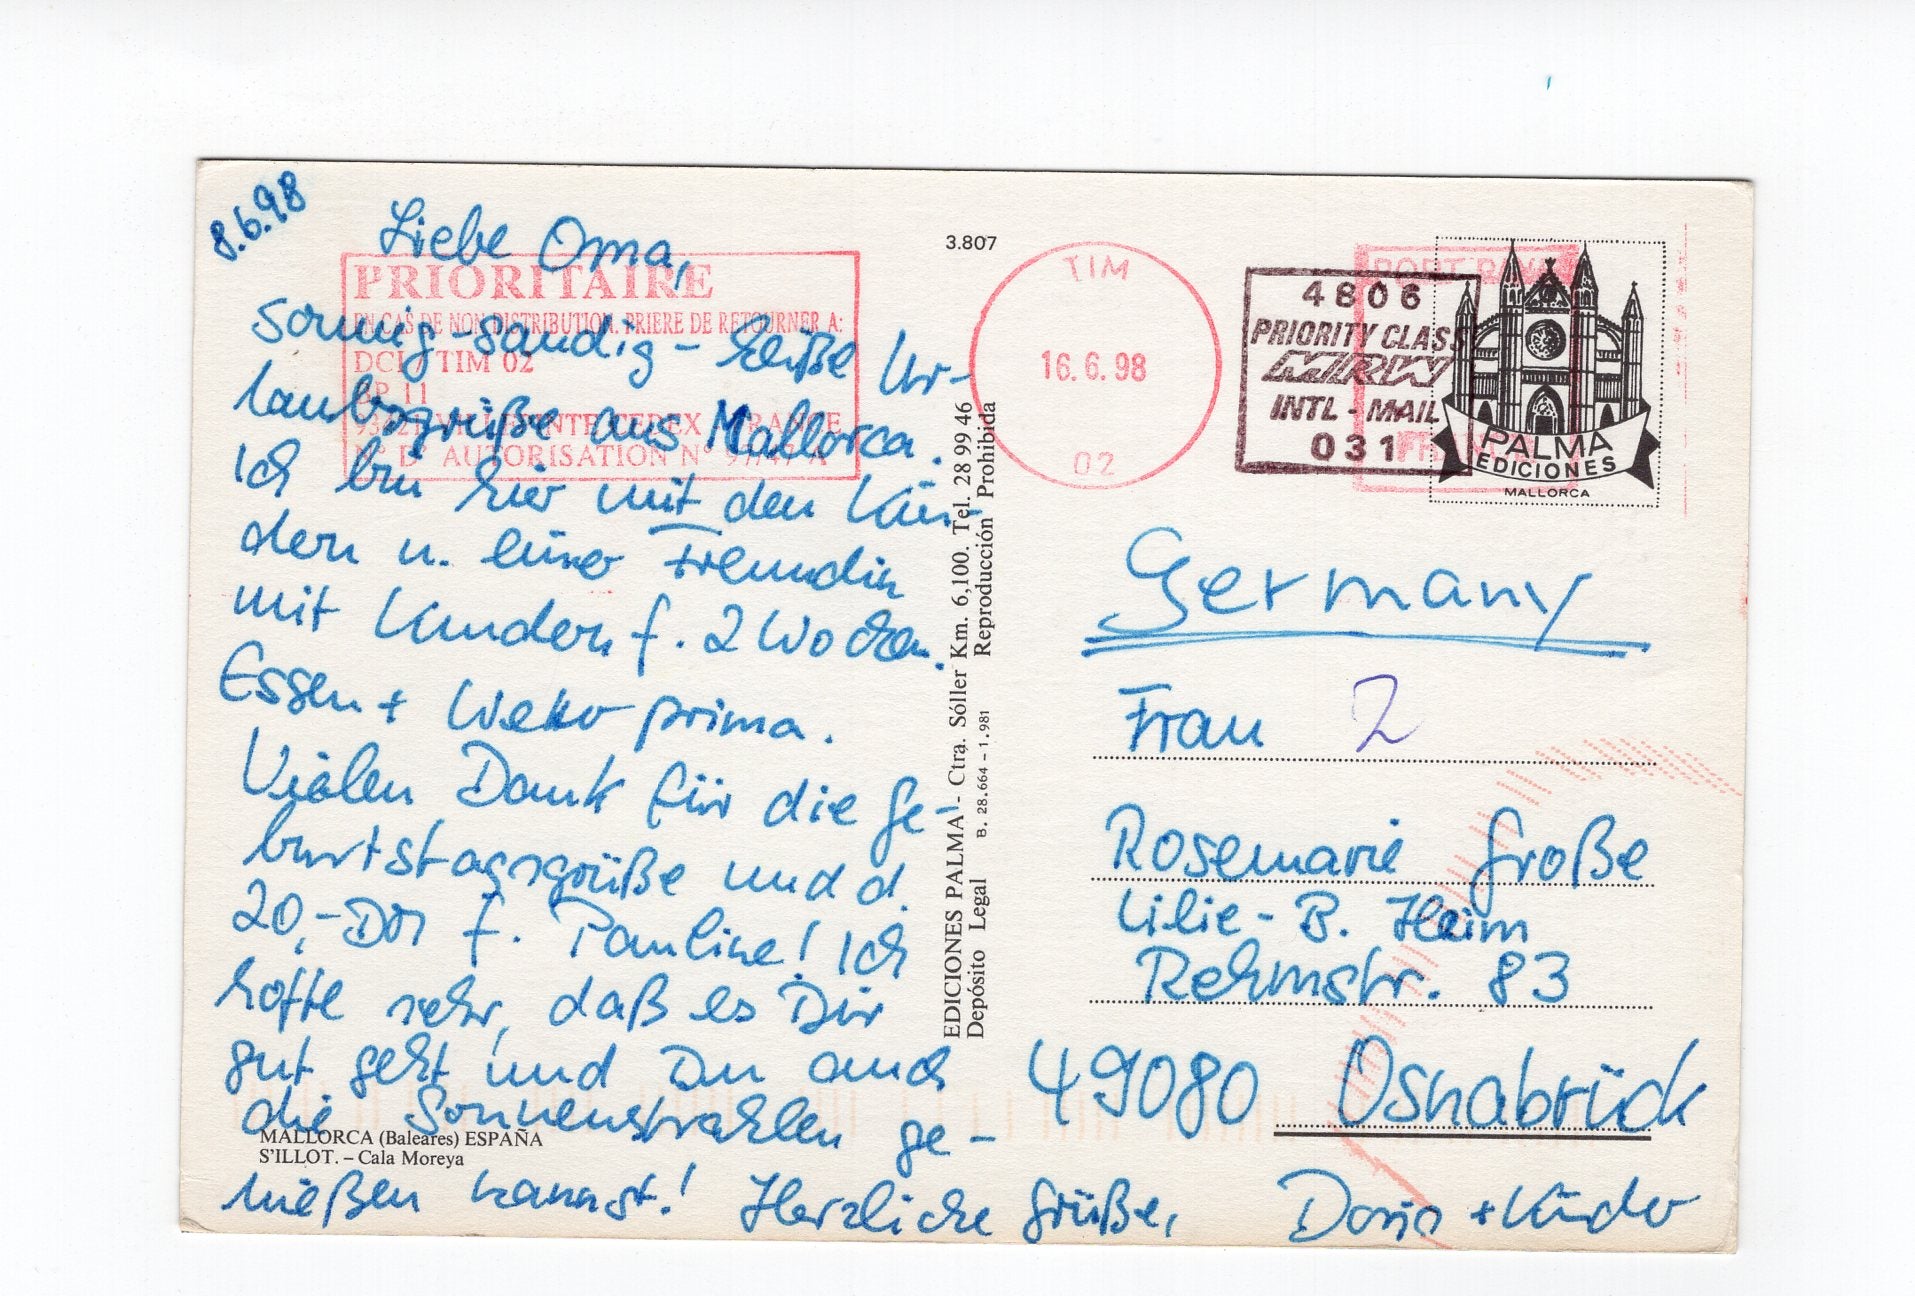 8.6.98
Liebe Oma,
sonnig-sandig-heiße Ur-
laubsgrüße aus Mallorca.
Ich bin hier mit den Kin-
dern u. einer Freundin
mit Kindern f. 2 Wochen.
Essen + Wetter prima.
Vielen Dank für die Ge-
burtstagsgrüße und d.
20,- DM f. Pauline! Ich
hoffe sehr, daß es Dir
gut geht und Du auch
die Sonnenstrahlen ge-
nießen kannst! Herzliche Grüße,
Doris + Kinder
PRIORITAIRE
EN CAS DE NON DISTRIBUTION, PRIERE DE RETOURNER A:
DCI / TIM 02
BP 11
CEDEX FRANCE
N° D' AUTORISATION N° 97/47 A
MALLORCA (Baleares) ESPAÑA
S'ILLOT. – Cala Moreya
3.807
EDICIONES PALMA - Ctra. Sóller Km. 6,100. Tel. 28 99 46
Depósito Legal B. 28.664 – 1.981 Reproducción Prohibida
TIM
16.6.98
02
4806
PRIORITY CLASS
MRW
INTL - MAIL
031
PORT PAYÉ
PALMA
EDICIONES
MALLORCA
Germany
Frau 2
Rosemarie Große
Lilie-B. Heim
Rehmstr. 83
49080 Osnabrück